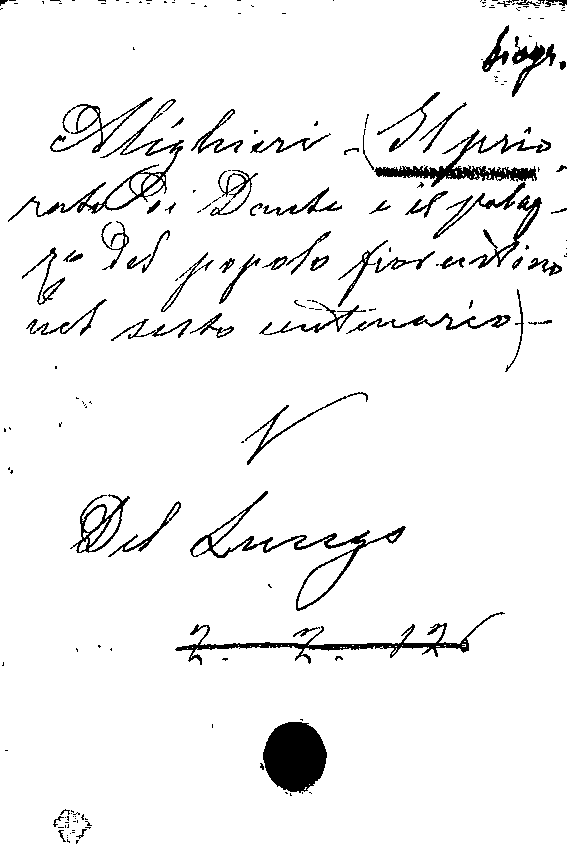 biogr.
Alighieri - (Il prio
rato di Dante e il palaz-
zo del popolo fiorentino
nel sesto centenario) -
V
Del Lungo
2. 2. 126